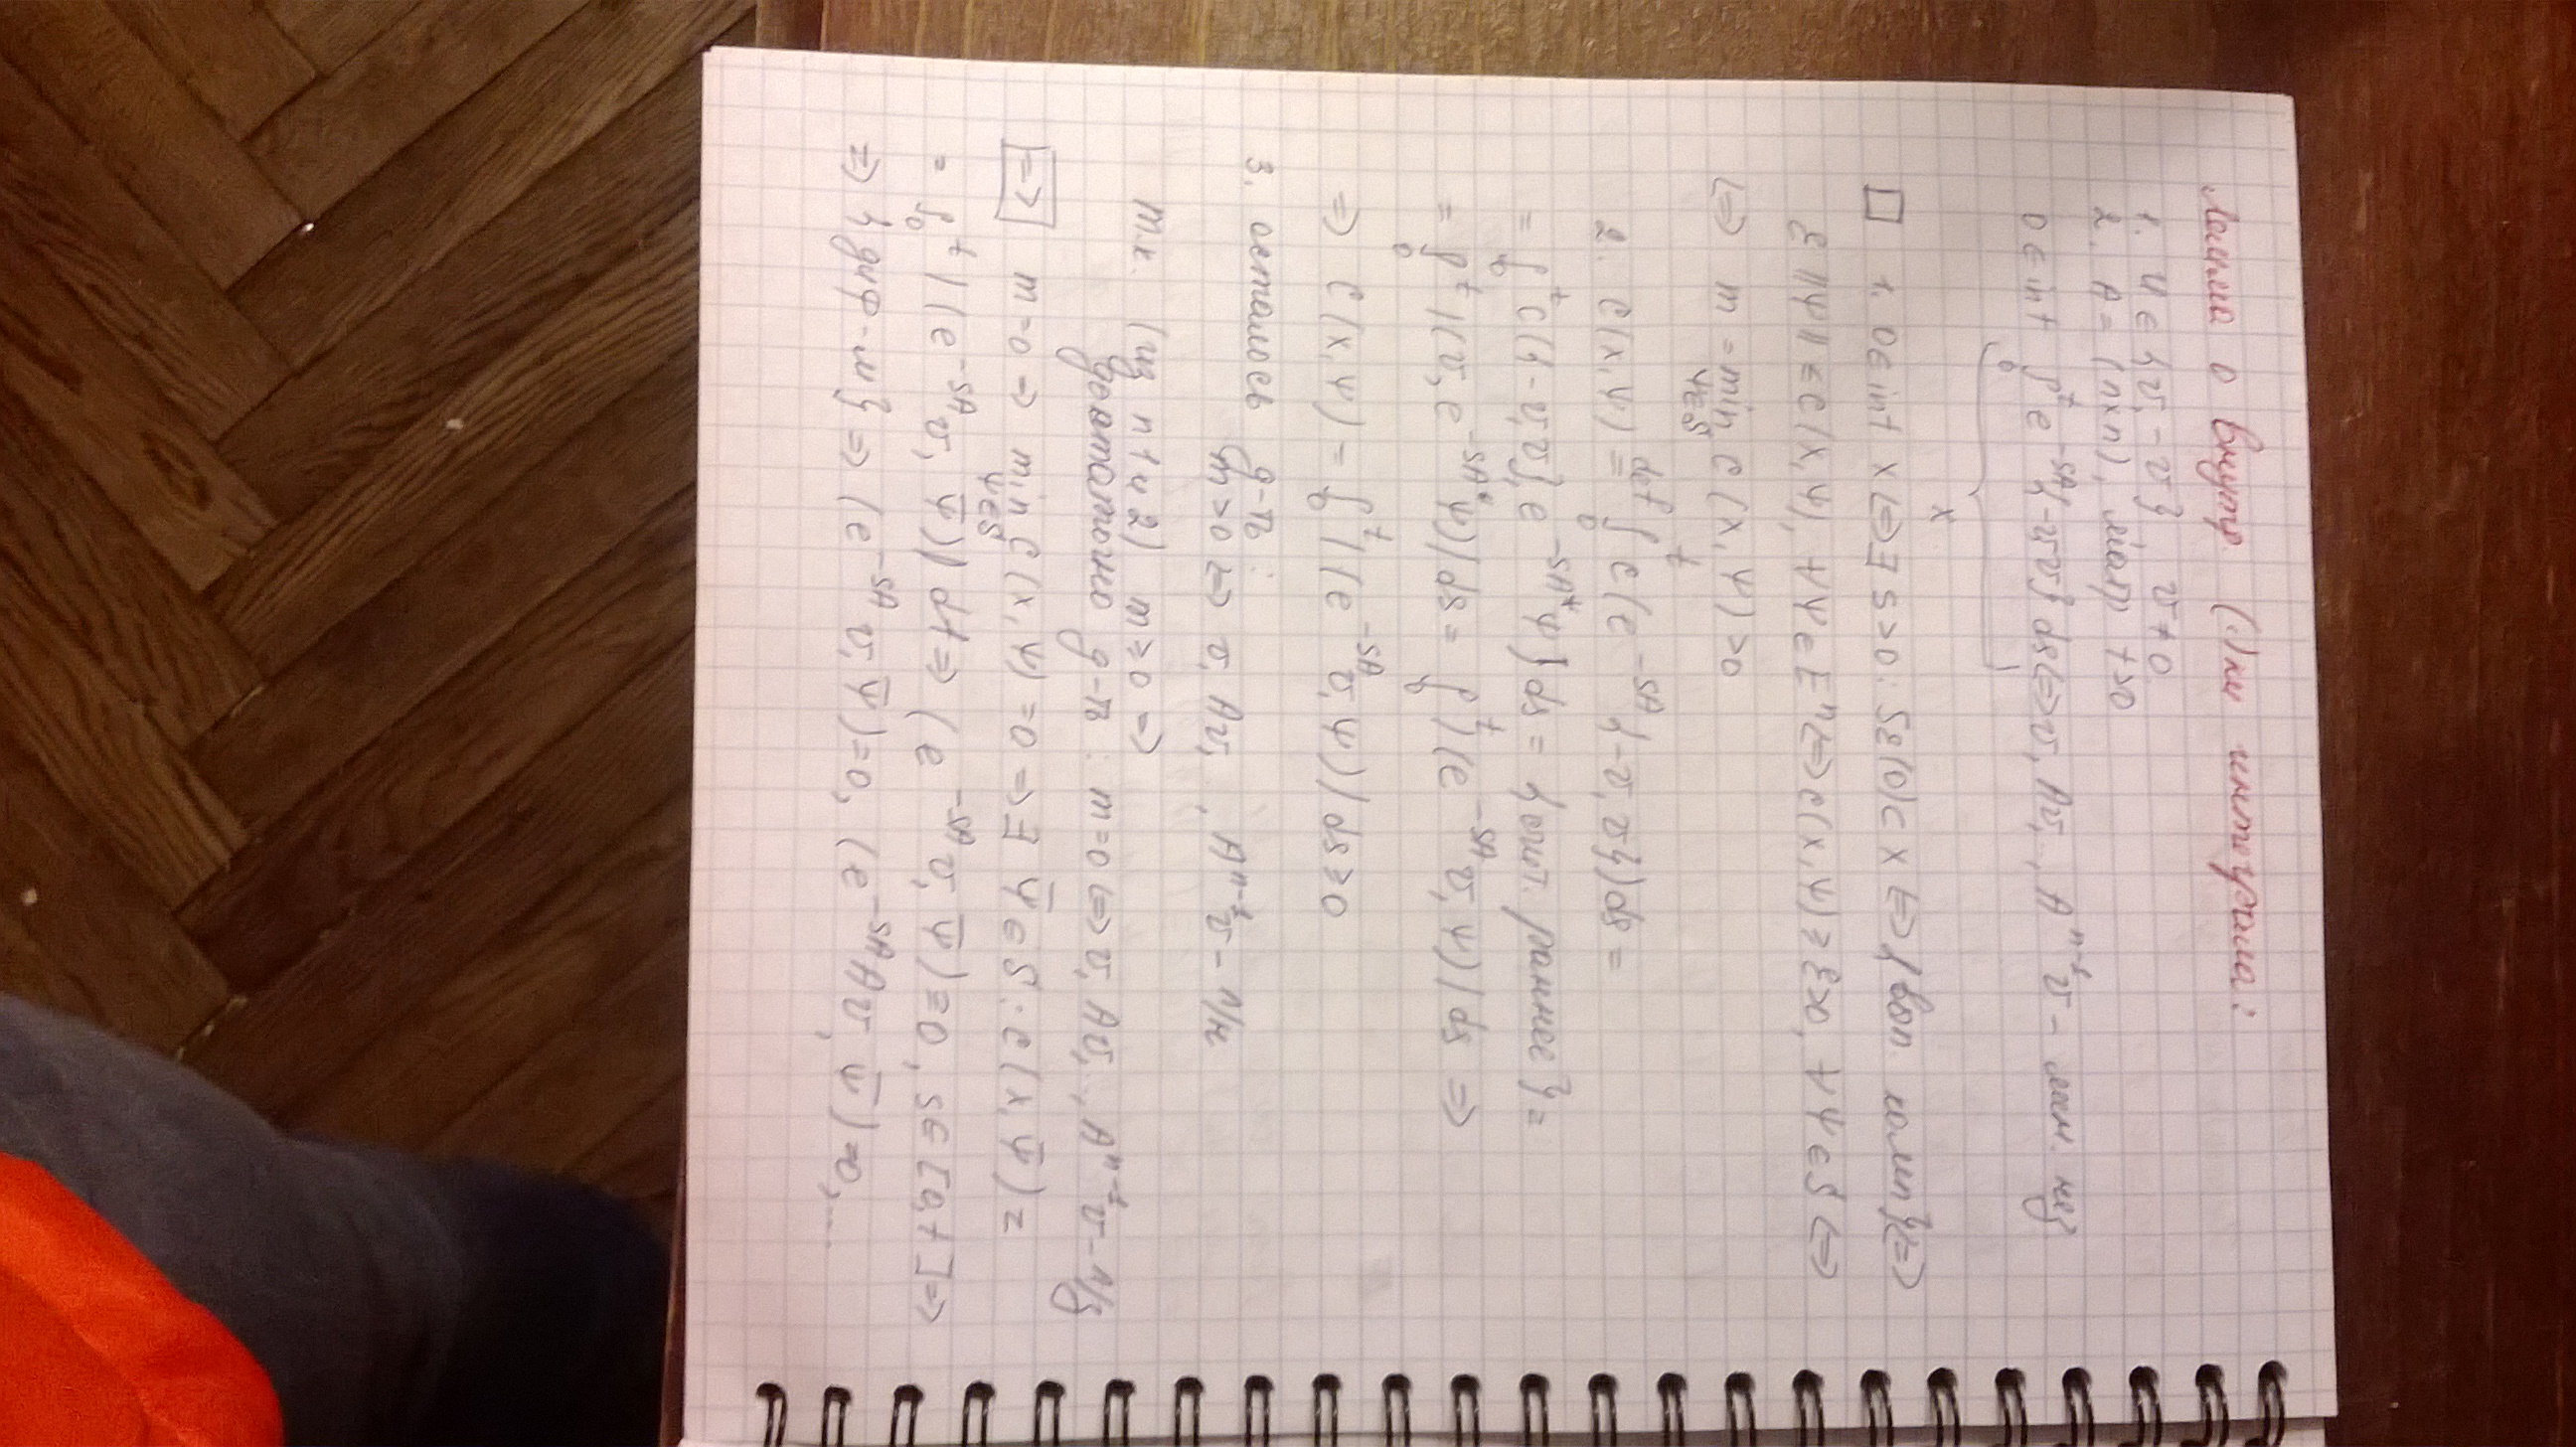 Лемма о внутр. (для интеграла:
1. U ∈ {v, -v}, v ≠ 0
2. A = (n×n), t>0
0 ∈ int ∫₀ᵗ e^{-sA}{-v, v} ds <=> v, Av, .., A^{n-1}v - лин. нез
X
□ 1. 0 ∈ int X <=> ∃ ε>0: S_ε(0) ⊂ X <=> {вып. комп} <=>
ε||ψ|| ≤ c(X,ψ), ∀ψ ∈ Eⁿ <=> c(X,ψ) ≥ ε>0, ∀ψ∈S <=>
<=> m = min_{ψ∈S} c(X,ψ) >0
2. c(X,ψ) =^{def} ∫₀ᵗ c(e^{-sA}{-v, v}) ds =
= ∫₀ᵗ c({-v, v}, e^{-sA*}ψ) ds = {раннее} =
= ∫₀ᵗ |(v, e^{-sA*}ψ)| ds = ∫₀ᵗ |(e^{-sA}v, ψ)| ds =>
=> c(X,ψ) = ∫₀ᵗ |(e^{-sA}v, ψ)| ds ≥ 0
3. осталось д-ть:
m>0 <=> v, Av, .., A^{n-1}v - л/н
т.к. (из п 1 и 2) m ≥ 0 =>
достаточно д-ть: m=0 <=> v, Av, .., A^{n-1}v - л/з
[=>] m=0 => min_{ψ∈S} c(X,ψ) =0 => ∃ ψ̄ ∈ S: c(X,ψ̄) =
= ∫₀ᵗ |(e^{-sA}v, ψ̄)| dt => (e^{-sA}v, ψ̄) ≡ 0, s∈[0,t] =>
=> {диф-м} => (e^{-sA}v, ψ̄)=0, (e^{-sA}Av, ψ̄)=0, ...